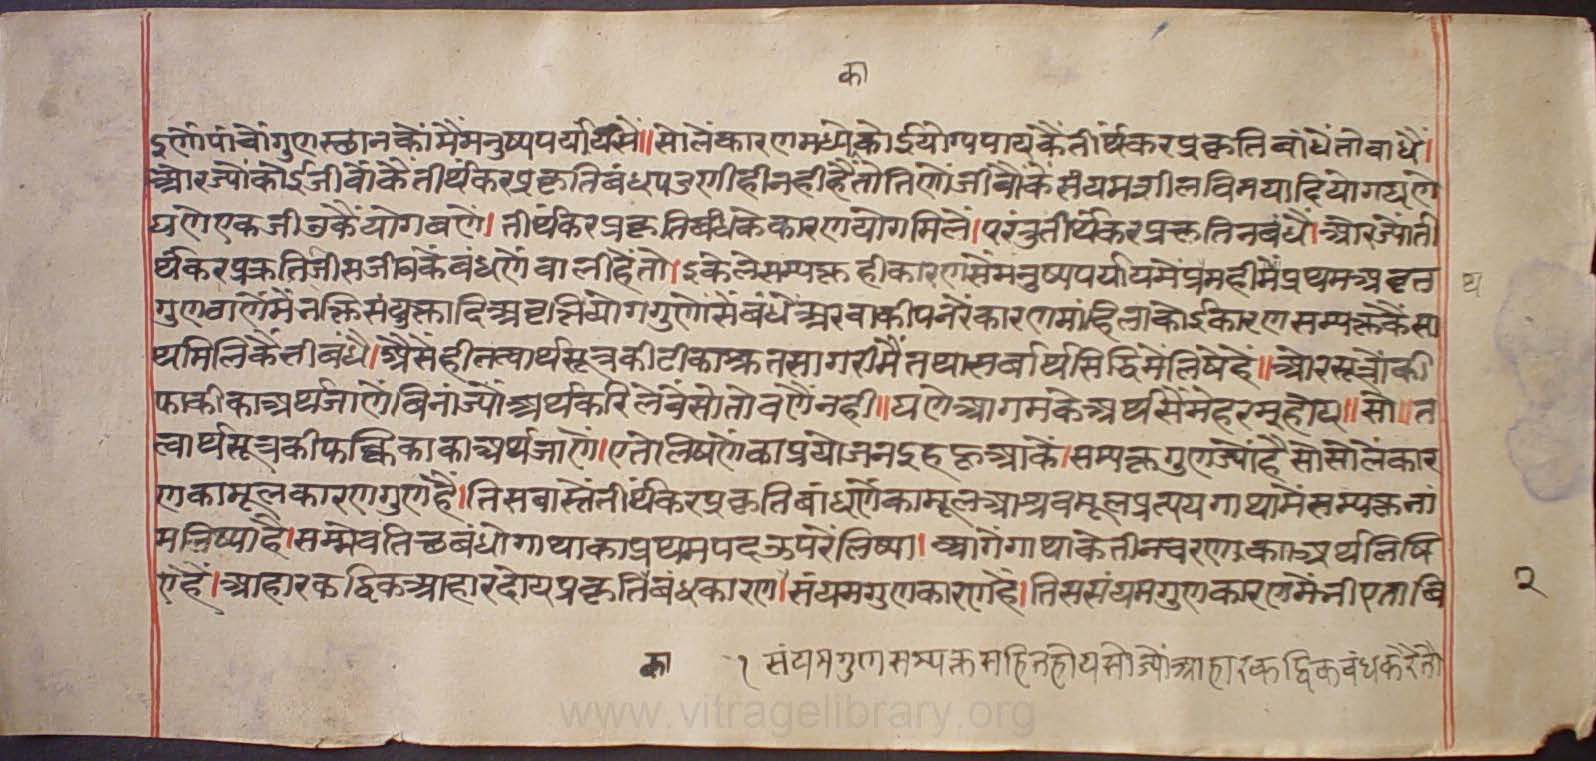 का
इणोंपांचोंगुणस्ठानकोंमैंमनुष्यपर्यायसैं॥सोलेंकारणमध्येकोईयोग्यपायकैंतीर्थंकरप्रकृतिबांधेंतोबाधैं।
औरज्योंकोईजीवोंकैंतीर्थंकरप्रकृतिबंधपडणीहीनहीहैंतोतिणोंजीवोंकेंसंयमशीलविनयादियोगघणे
घणेएकजीवकैंयोगबणें।तीर्थंकरप्रकृतिबंधकेकारणयोगमिलें।परंतुतीर्थंकरप्रकृतिनबंधें।औरज्योंती
र्थंकरप्रकृतिजीसजीवकेंबंधणेंवालीहैंतो।इकेलेसम्यक्तहीकारणसेंमनुष्यपर्यायमेंप्रमहीमैंप्रथमअवृत
गुणवाणेंमेंभक्तिसंयुक्तादिअवृत्तियोगगुणोंसेंबंधेंअरबाकीपनरेंकारणमांहिलाकोईकारणसम्यक्तकैंसा
थमिलिकेंतीबंधैं।औसेंहीतत्वार्थसूत्रकीटीकाश्रुतसागरीमेंतथासर्वार्थसिद्धिमेंलिषेहें॥औरसूत्रोंकी
फाकीकाअर्थजाणेंबिनांज्योंअर्थकरिलेवेंसोतोबणेंनही॥घणेआगमकेअर्थसेंमेहरमहोय॥सो॥त
त्वार्थसूत्रकीफक्किकाकाअर्थजाणें।एतोलिषणेंकाप्रयोजनइहकृआकें।सम्यक्तगुणज्योंहैंसोसोलेंकार
णकामूलकारणगुणहैं।तिसवास्तेंतीर्थंकरप्रकृतिबांधणेंकामूलआश्रवमूलप्रत्ययगाथामेंसम्यक्तनां
मलिष्याहै।सम्मेवतिच्छबंधोगाथाकाप्रथमपदऊपरेंलिष्या।आगेंगाथाकेतीनचरणकाअर्थलिषि
एहैं।आहारकद्विकआहारदोयप्रकृतिबंधकारण।संयमगुणकारणहैं।तिससंयमगुणकारणमैंनीएताबि
थ
२
का
१ संयमगुणसम्यक्तसहितहोयसोज्योंआहारकद्विकबंधकरैंतो
www.vitragelibrary.org